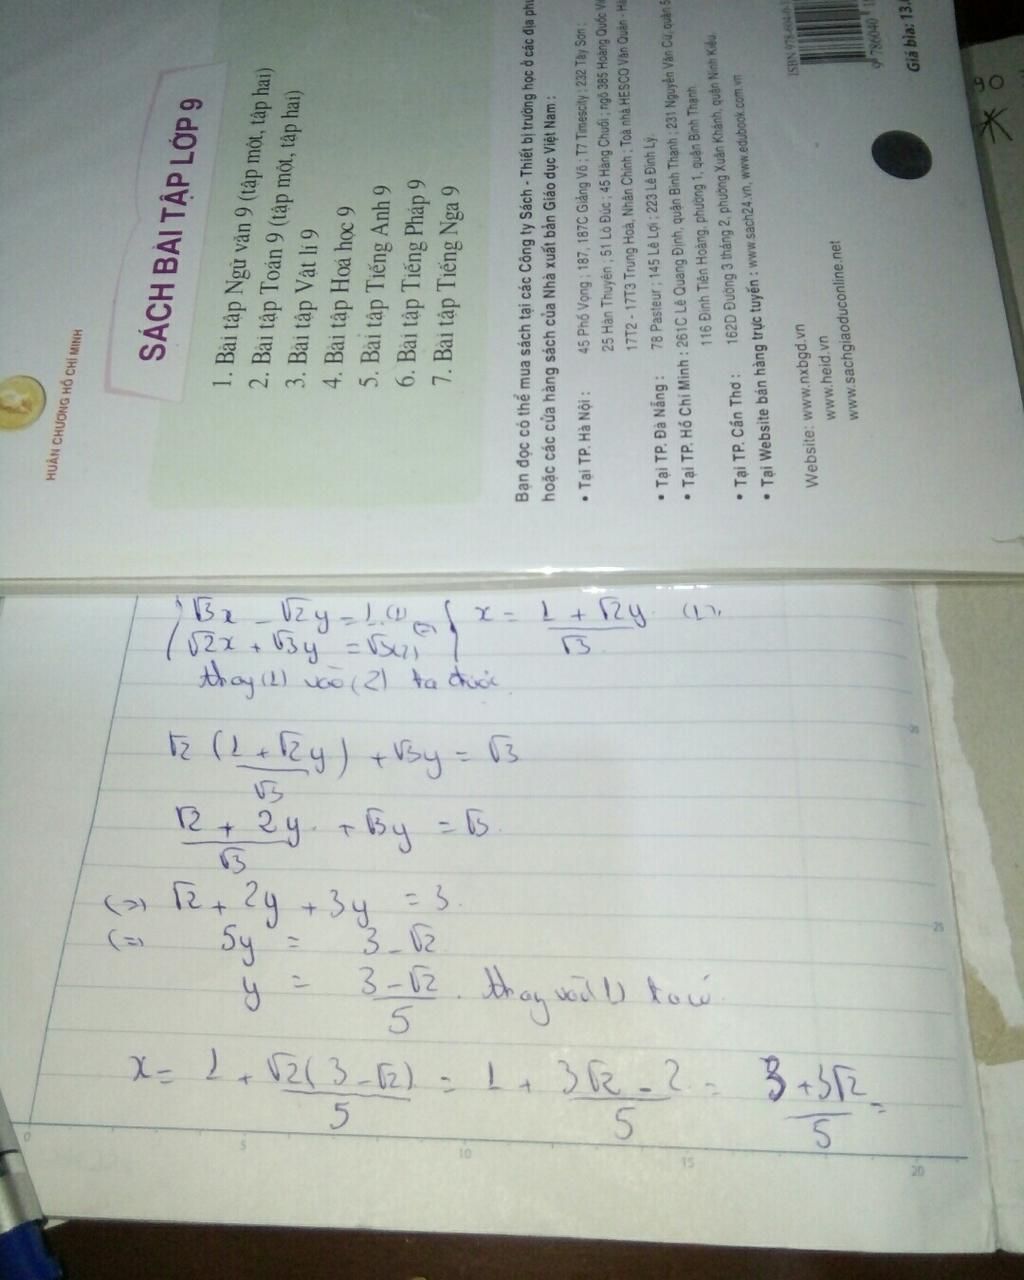 HUÂN CHƯƠNG HỒ CHÍ MINH
SÁCH BÀI TẬP LỚP 9
1. Bài tập Ngữ văn 9 (tập một, tập hai)
2. Bài tập Toán 9 (tập một, tập hai)
3. Bài tập Vật lí 9
4. Bài tập Hoá học 9
5. Bài tập Tiếng Anh 9
6. Bài tập Tiếng Pháp 9
7. Bài tập Tiếng Nga 9
Bạn đọc có thể mua sách tại các Công ty Sách - Thiết bị trường học ở các địa
hoặc các cửa hàng sách của Nhà xuất bản Giáo dục Việt Nam :
• Tại TP. Hà Nội : 45 Phố Vọng ; 187, 187C Giảng Võ ; T7 Timescity ; 232 Tây Sơn ;
25 Hàn Thuyên ; 51 Lò Đúc ; 45 Hàng Chuối ; ngõ 385 Hoàng Quốc
17T2 - 17T3 Trung Hoà, Nhân Chính ; Toà nhà HESCO Văn Quán -
• Tại TP. Đà Nẵng : 78 Pasteur ; 145 Lê Lợi ; 223 Lê Đình Lý.
• Tại TP. Hồ Chí Minh : 261C Lê Quang Định, quận Bình Thạnh ; 231 Nguyễn Văn Cừ, quận 5
116 Đinh Tiên Hoàng, phường 1, quận Bình Thạnh.
• Tại TP. Cần Thơ : 162D Đường 3 tháng 2, phường Xuân Khánh, quận Ninh Kiều.
• Tại Website bán hàng trực tuyến : www.sach24.vn, www.edubook.com.vn
Website: www.nxbgd.vn
www.heid.vn
www.sachgiaoduconline.net
ISBN 978-604-0-1
9 786040
Giá bìa: 13.
√3x - √2y = 1 (1) (=) x = 1 + √2y / √3 (1).
√2x + √3y = √3 (2)
thay (1) vào (2) ta được
√2 (1 + √2y / √3) + √3y = √3
√2 + 2y / √3 + √3y = √3
(=) √2 + 2y + 3y = 3
(=) 5y = 3 - √2
y = 3 - √2 / 5 . thay vào (1) ta có
x = 1 + √2(3 - √2) / 5 = 1 + 3√2 - 2 / 5 = 3 + 3√2 / 5 =
0 5 10 15 20
25